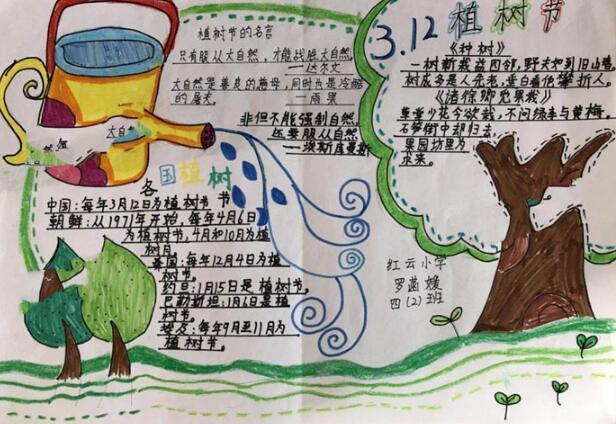 植树节的名言
只有服从大自然,才能战胜大自然。
——达尔文
大自然是善良的慈母,同时也是冷酷
的屠夫。 ——雨果
非但不能强制自然,
还要服从自然
——埃斯库罗斯
大自然
各国植树节
中国:每年3月12日为植树节
朝鲜:从1971年开始,每年4月6日
为植树节,4月和10月为植
树月
泰国:每年12月4日为植
树节
约旦:1月15日是植树节
巴勒斯坦:1月6日是植
树节。
埃及:每年9月至11月为
植树节
3.12植树节
《种树》
一树新栽益四邻,野夫如到旧山春。
树成多是人先老,垂白看他攀折人。
《诣徐卿觅果栽》
草堂少花今欲栽,不问绿李与黄梅。
石笋街中却归去,
果园坊里为
求来。
红云小学
罗菡媛
四(2)班